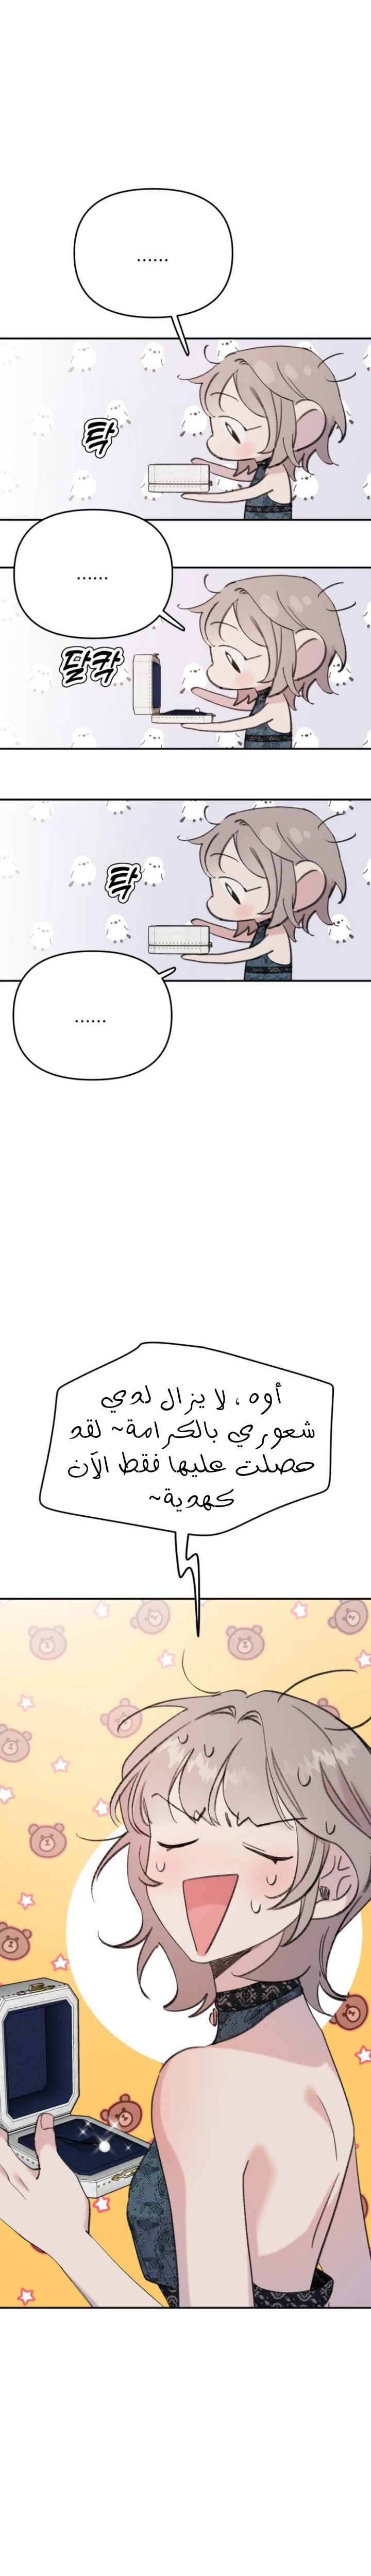 ......
탁
......
딸칵
탁
......
أوه ، لا يزال لدي
شعوري بالكرامة~ لقد
حصلت عليها فقط الآن
كهدية~